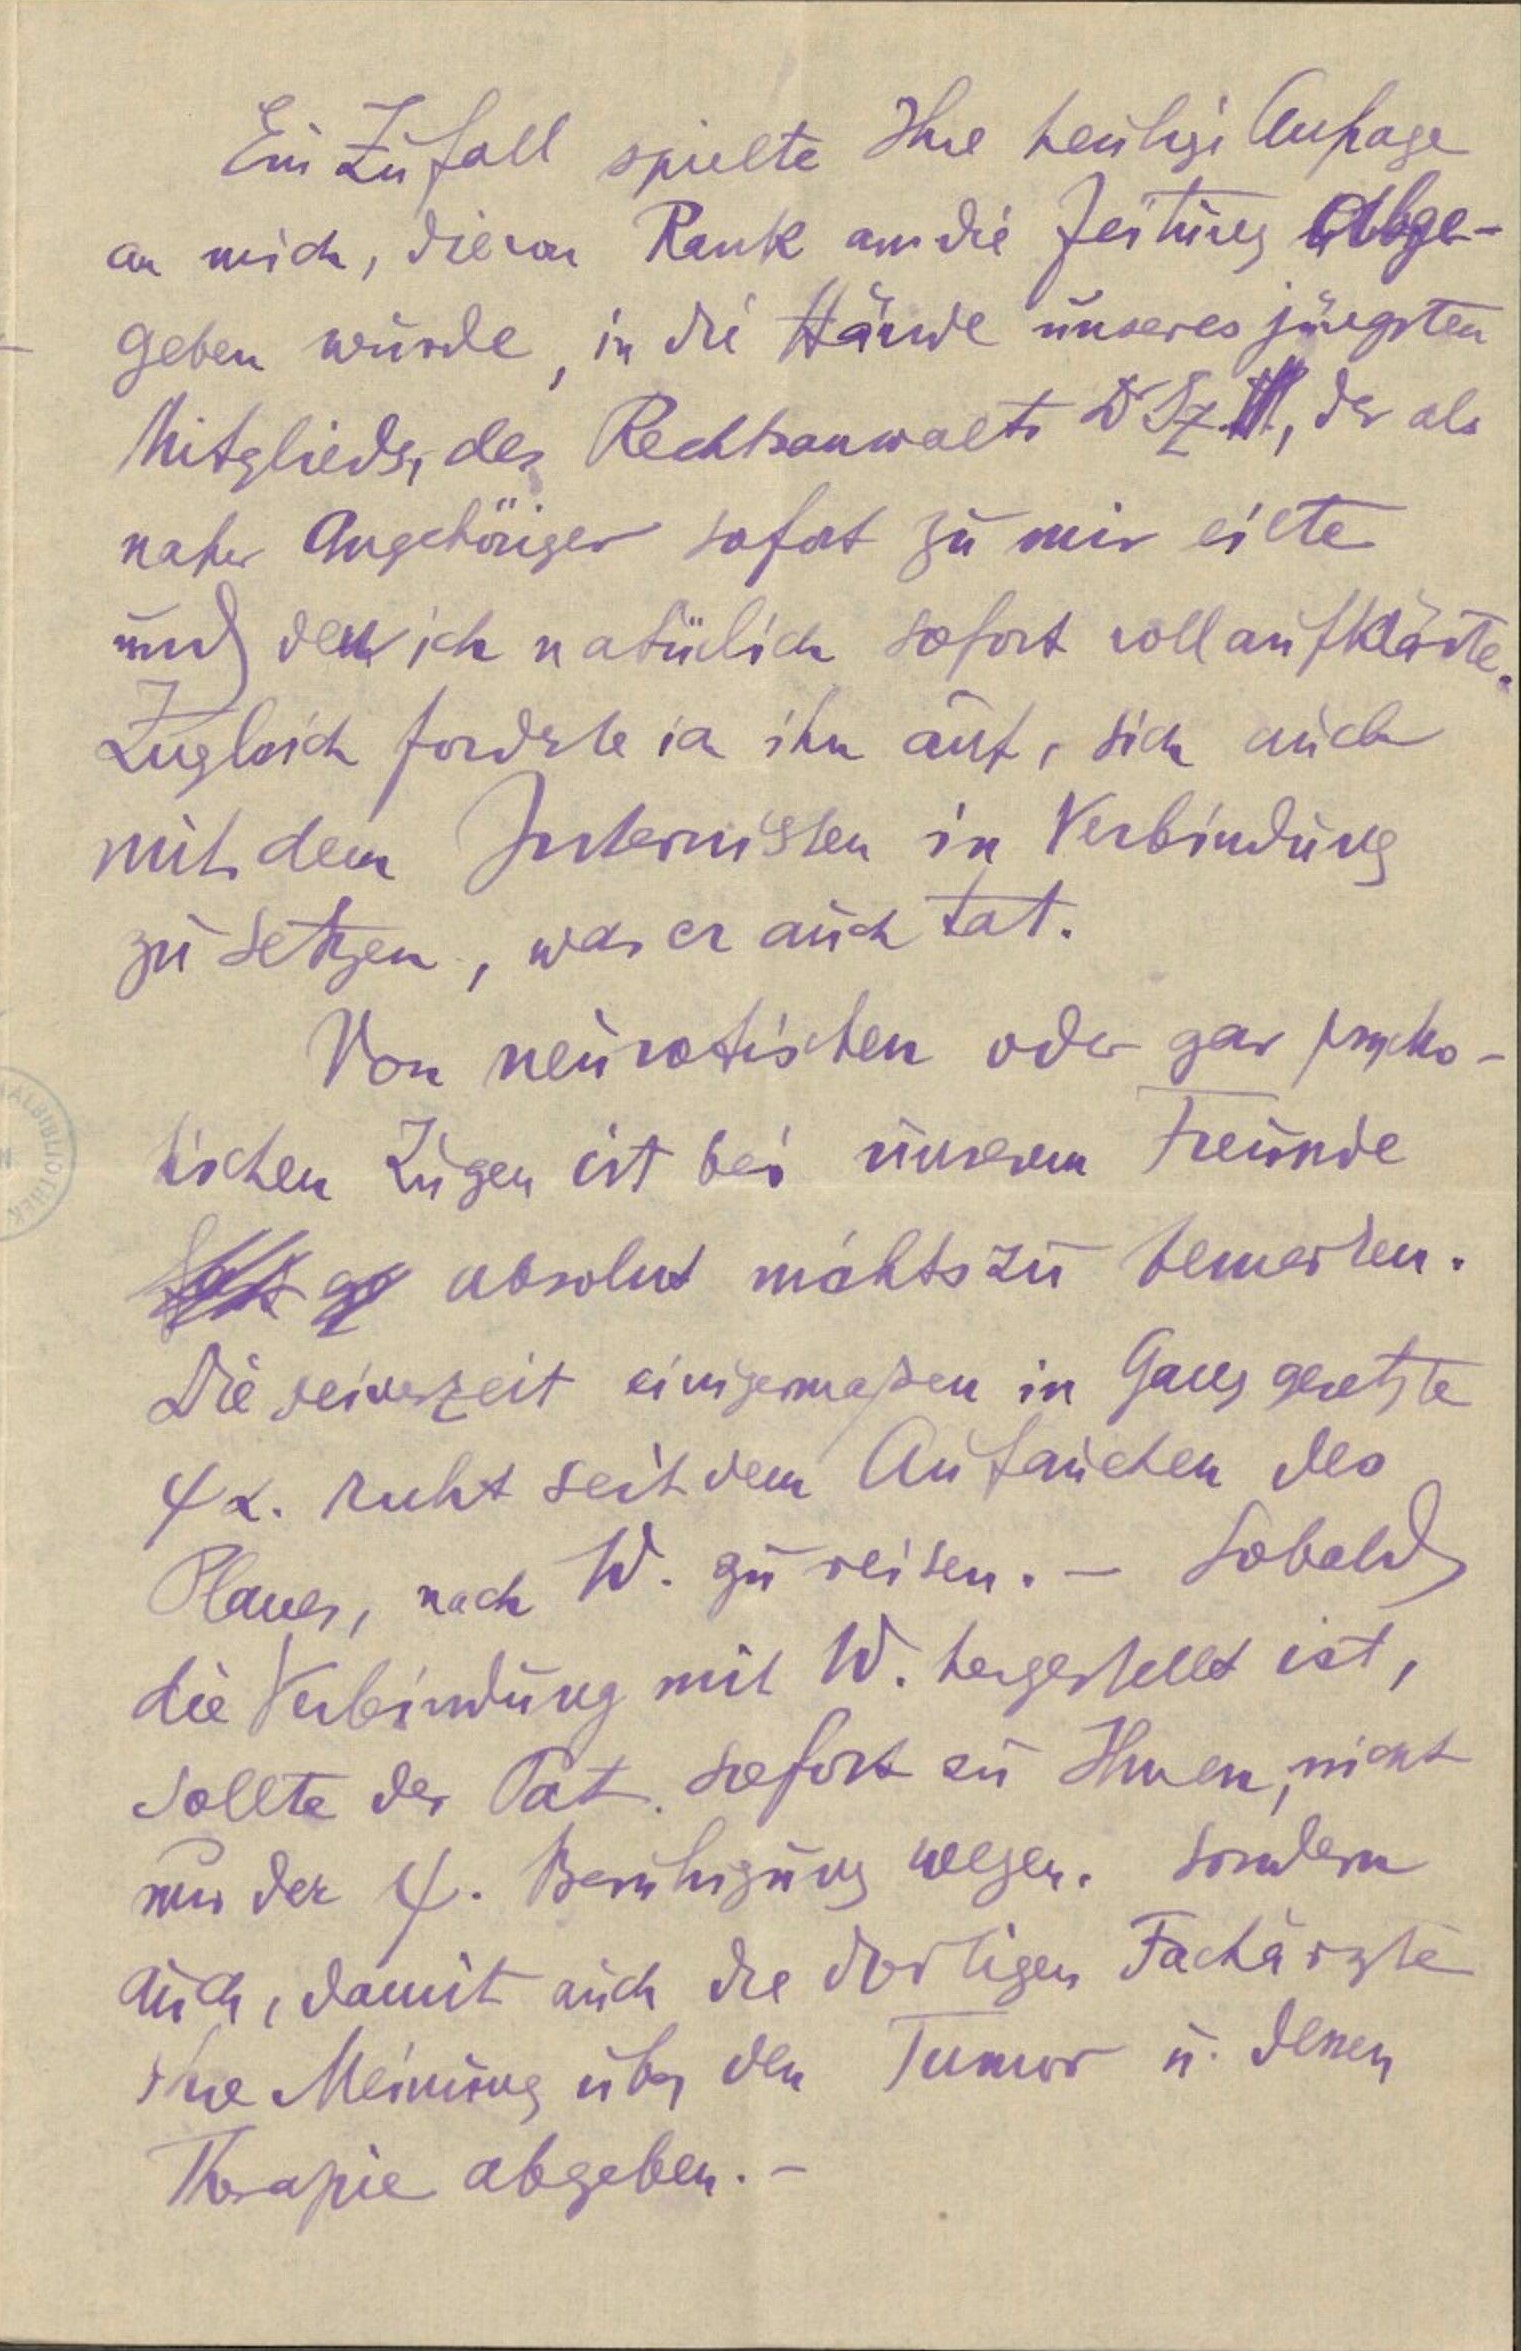 Ein Zufall spielte Ihre heutige Anfrage
an mich, die von Rank an die Zeitung abge-
geben wurde, in die Hände unseres jüngsten
Mitglieds, des Rechtsanwalts Dr Sz., der als
naher Angehöriger sofort zu mir eilte
und den ich natürlich sofort voll aufklärte.
Zugleich forderte ich ihn auf, sich auch
mit dem Internisten in Verbindung
zu setzen, was er auch tat.
Von neurotischen oder gar psycho-
tischen Zügen ist bei unserem Freunde
absolut nichts zu bemerken.
Die seinerzeit einigermaßen in Gang gesetzte
ψα. ruht seit dem Auftauchen des
Planes, nach W. zu reisen. – Sobald
die Verbindung mit W. hergestellt ist,
sollte der Pat. sofort zu Ihnen, nicht
nur der ψ. Beruhigung wegen. sondern
auch, damit auch die dortigen Fachärzte
ihre Meinung über den Tumor u. denen
Therapie abgeben. –